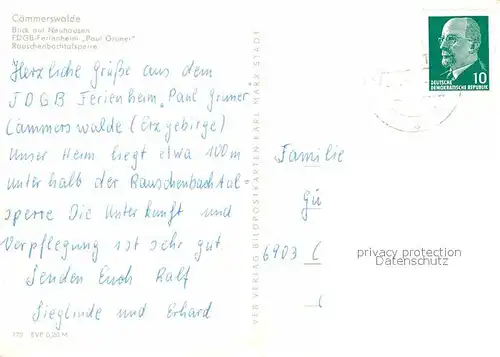 Cämmerswalde
Blick auf Neuhausen
FDGB-Ferienheim „Paul Gruner"
Rauschenbachtalsperre
Herzliche Grüße aus dem
FDGB Ferienheim „Paul Gruner"
Cämmerswalde (Erzgebirge)
Unser Heim liegt etwa 100m
unterhalb der Rauschenbachtal-
sperre Die Unterkunft und
Verpflegung ist sehr gut.
Senden Euch Ralf
Sieglinde und Erhard
173 EVP 0,20 M
VEB VERLAG BILDPOSTKARTEN KARL MARX STADT
DEUTSCHE
DEMOKRATISCHE REPUBLIK
10
Familie
Gü
6903
privacy protection
Datenschutz